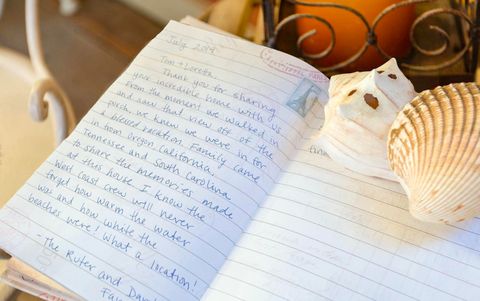 July 2019
Tom & Loretta,
Thank you for sharing
your incredible home with us
from the moment we walked in
and saw that view off of the
porch, we knew we were in for
a blessed vacation. Family came
in from Oregon, California,
Tennessee and South Carolina
to share the memories made
at this house. I know the
West Coast crew will never
forget how warm the water
was and how white the
beaches were! What a location!
- The Ruter and